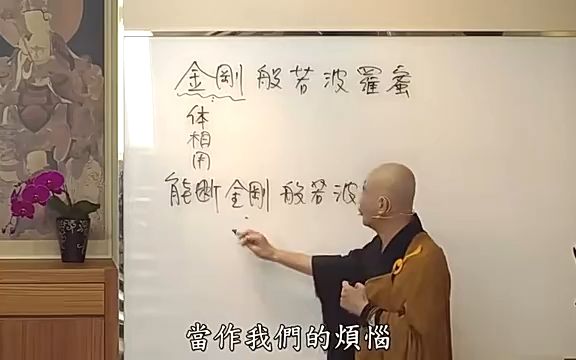 金剛般若波羅蜜
体
相
用
能断金剛般若波
當作我們的煩惱